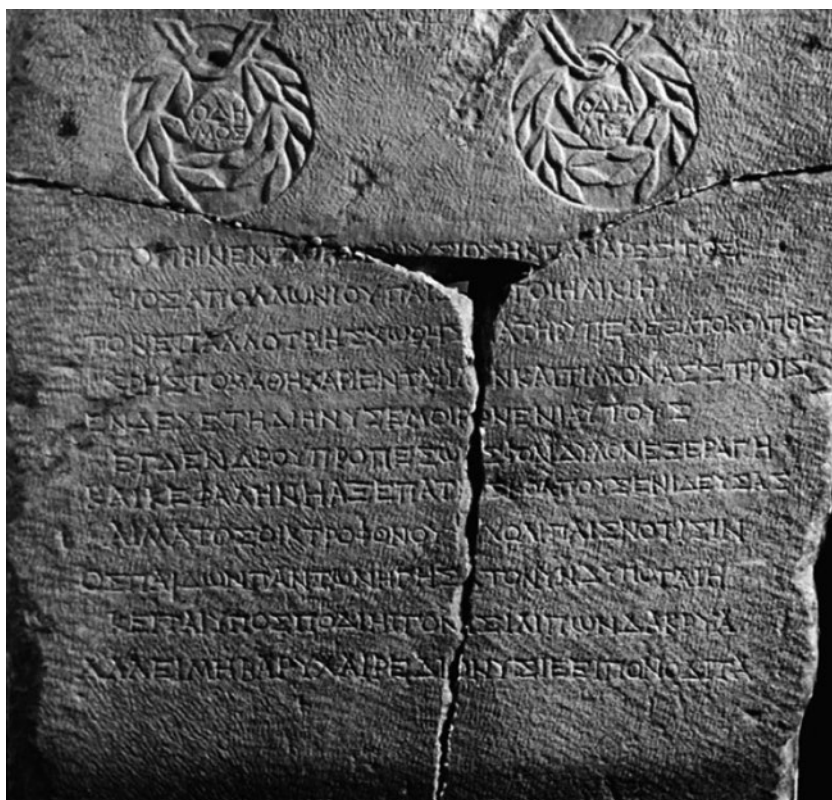 ΟΔΗ
ΜΟΣ
ΟΔΗ
ΜΟΣ
ΟΤΟΠΡΙΝΕΝΖΩΟ ΟΝΥΣΙΟΣΗΝΠΑΝΑΡΕΣΤΟΣ
ΙΟΣΑΠΟΛΛΩΝΙΟΥΠΑΙΣ ΤΟΙΗΛΙΚΙΗ
ΤΟΝΕΠΑΛΛΟΤΡΙΗΣΧΩΡΗΣ ΑΤΗΡΥΠΕΔΕΞΑΤΟΚΟΛΠΟΙΣ
ΧΡΗΣΤΟΜΑΘΗΧΑΡΙΕΝΤΑΦΙΛΟΝΚΑΙΤΙΜΙΟΝΑΣΤΟΙΣ
ΕΝΔΕΚΕΤΗΔΙΗΝΥΣΕΜΟΙΡΩΝΕΝΙΑΥΤΟΥΣ
ΕΓΔΕΝΔΡΟΥΠΡΟΠΕΣΩΝΣΦΟΝΔΥΛΟΝΕΞΕΡΑΓΗ
ΚΑΙΚΕΦΑΛΗΝΗΑΞΕΠΑΤΡΟΣΚΟΛΠΟΥΣΕΝΙΔΕΥΣΑΣ
ΑΙΜΑΤΟΣΟΙΚΤΡΟΦΟΝΟΥ ΧΟΛΙΠΑΙΣΝΟΤΙΣΙΝ
ΟΣΠΑΙΔΩΝΠΑΝΤΩΝΗΓΗΣΑΤΟΝΥΝΔΥΠΟΓΑΙΗ
ΚΕΙΤΑΙΥΠΟΣΠΟΔΙΗΙΓΟΝΕΣΙΛΙΠΩΝΔΑΚΡΥΑ
ΑΛΛΕΙΜΗΒΑΡΥΧΑΙΡΕΔΙΟΝΥΣΙΕΕΙΠΟΝΟΔΙΤΑ